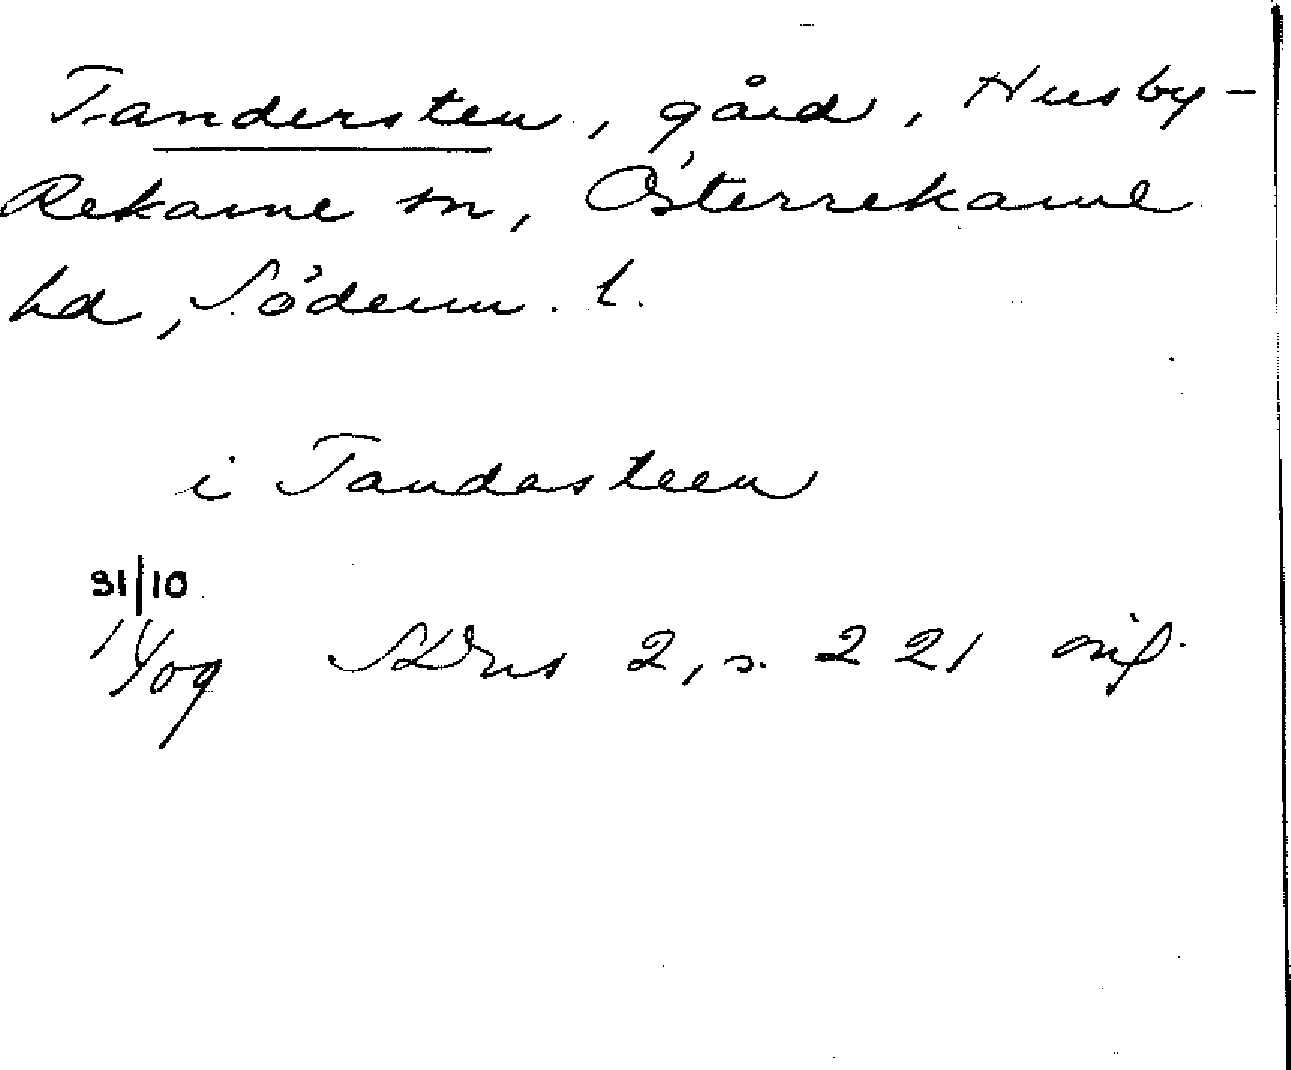 Tandersten, gård, Husby-
Rekarne sn, Österrekarne
hd, Söderm. l.
i Tandasteen
31/10
1409 SDns 2, s. 221 orig.